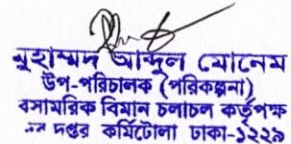 মুহাম্মদ আব্দুল মোনেম
উপ-পরিচালক (পরিকল্পনা)
বেসামরিক বিমান চলাচল কর্তৃপক্ষ
দপ্তর কুর্মিটোলা ঢাকা-১২২৯